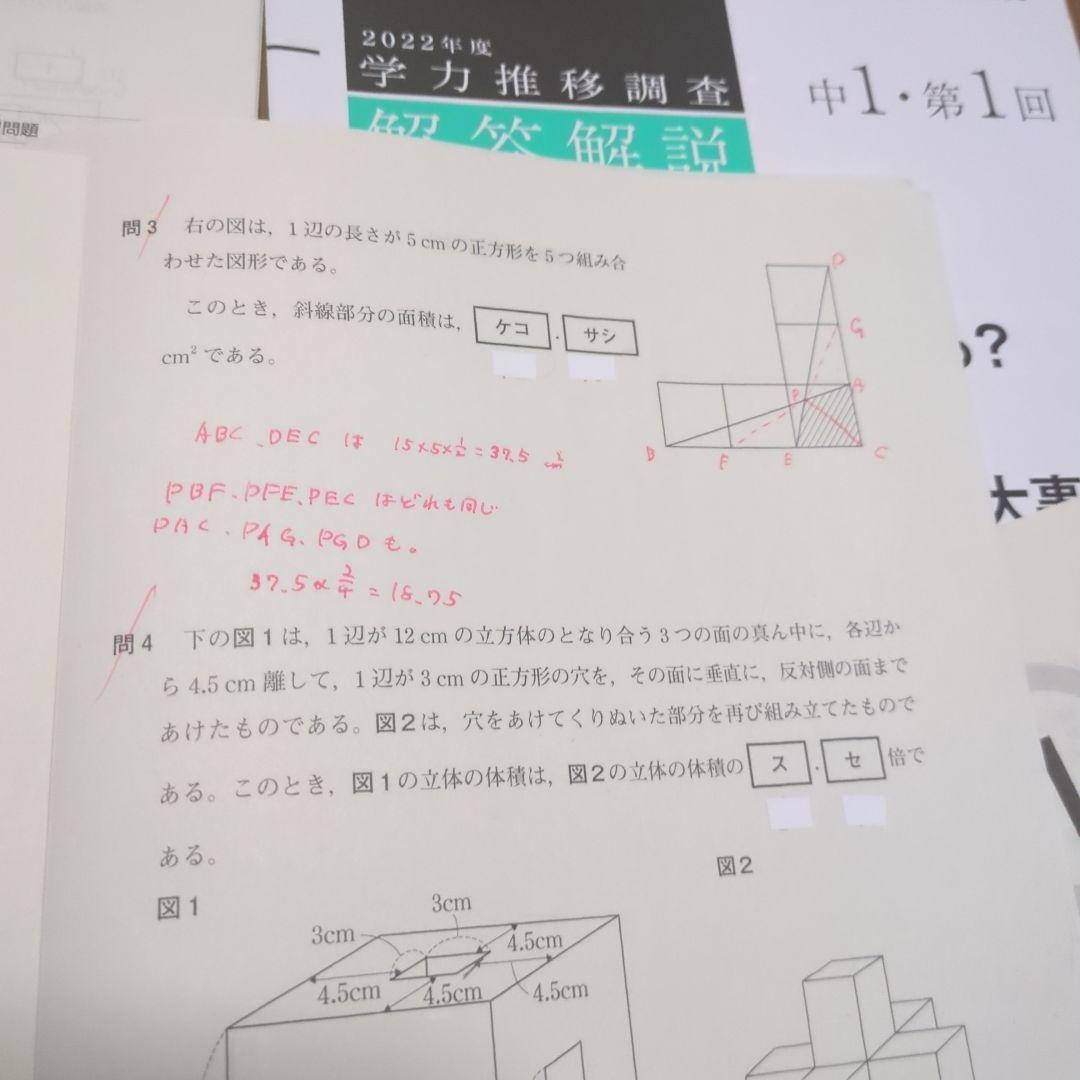 2022年度
学力推移調査
中1・第1回
解答解説
問題
問3 右の図は，1辺の長さが5cmの正方形を5つ組み合
わせた図形である。
このとき，斜線部分の面積は，ケコ．サシ
cm²である。
D
G
A
P
B F E C
ABC、DECは 15×5×1/2＝37.5 cm²
PBF、PFE、PECはどれも同じ
PAC、PAG、PGDも。
37.5×2/4＝18.75
問4 下の図1は，1辺が12cmの立方体のとなり合う3つの面の真ん中に，各辺か
ら4.5cm離して，1辺が3cmの正方形の穴を，その面に垂直に，反対側の面まで
あけたものである。図2は，穴をあけてくりぬいた部分を再び組み立てたもので
ある。このとき，図1の立体の体積は，図2の立体の体積のス．セ倍で
ある。
図1
図2
3cm
3cm
4.5cm
4.5cm
4.5cm
4.5cm
?
大事